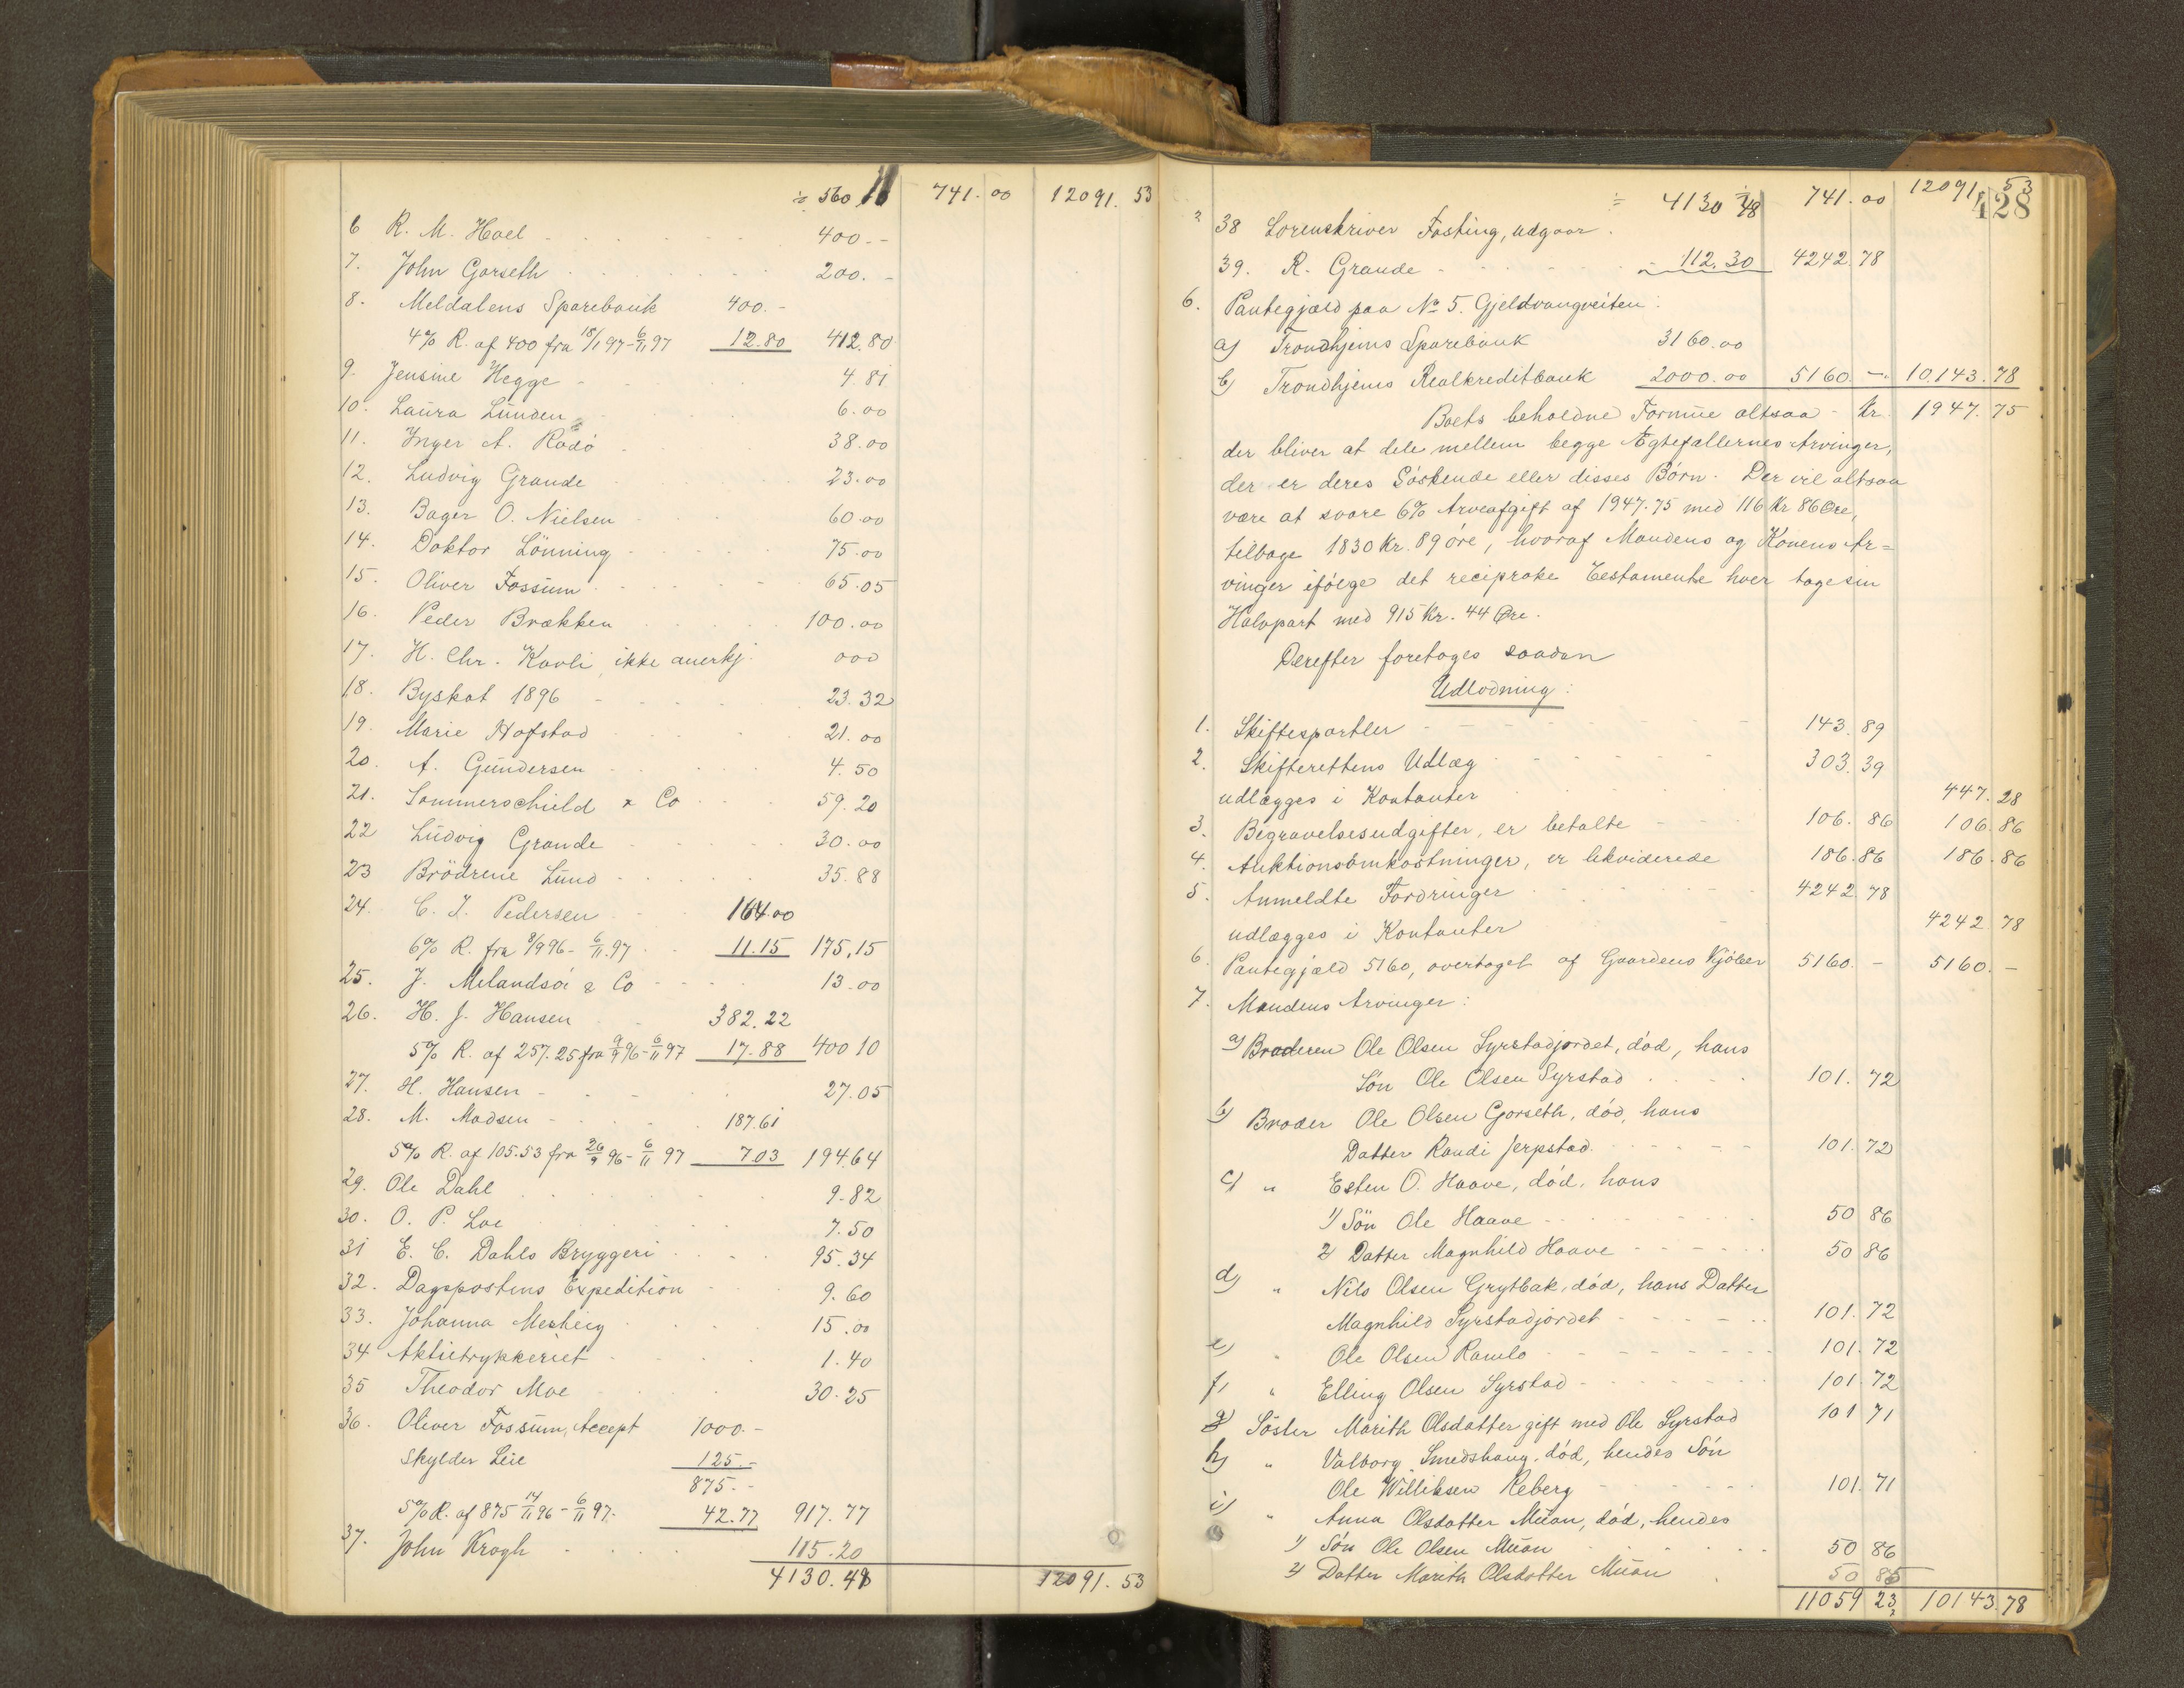 ÷ 560 10 741.00 12091.53
6 R. M. Hoel 400.-
7. John Gorseth 200.-
8. Meldalens Sparebank 400.-
4% R. af 400 fra 18/1 97-6/11 97 12.80 412.80
9. Jensine Hegge 4.81
10. Laura Lunden 6.00
11. Inger A. Rodö 38.00
12. Ludvig Grande 23.00
13. Bager O. Nielsen 60.00
14. Doktor Lönning 75.00
15. Oliver Fossum 65.05
16. Peder Brækken 100.00
17. H. Chr. Kavli, ikke anerkj. 000
18. Byskat 1896 23.32
19. Marie Hofstad 21.00
20. A. Gundersen 4.50
21. Sommerschield & Co 59.20
22 Ludvig Grande 30.00
23 Brödrene Lund 35.88
24. C. I. Pedersen 164.00
6% R. fra 8/9 96-6/11.97 11.15 175,15
25. J. Melandsö & Co 13.00
26. H. J. Hansen 382.22
5% R. af 257.25 fra 9/9 96-6/11 97 17.88 400 10
27. H. Hansen 27.05
28. M. Madsen 187.61
5% R. af 105.53 fra 26/9 96-6/11 97 7.03 194.64
29. Ole Dahl 9.82
30. O. P. Loe 7.50
31 E. C. Dahls Bryggeri 95.34
32. Dagspostens Expedition 9.60
33. Johanna 15.00
34 Aktietrykkeriet 1.40
35 Theodor Moe 30.25
36. Oliver Fossum, Accept 1000.-
Skylder Leie 125.-
875.-
5% R. af 875 14/11 96-6/11 97. 42.77 917.77
37. John Krogh 115.20
4130.48 12091.53
428
÷ 4130 48 741.00 12091 53
38 Sorenskriver Fasting, udgaar.
39. R. Grande 112.30 4242.78
6. Pantegjæld paa No 5. Gjeldvangveiten:
a) Trondhjems Sparebank 3160.00
b) Trondhjems Realkreditbank 2000.00 5160.- 10.143.78
Boets beholdne Formue altsaa - Kr. 1947.75
der bliver at dele mellem begge Ægtefællernes Arvinger,
der er deres Söskende eller disses Börn. Der vil altsaa
være at svare 6% Arveafgift af 1947.75 med 116 Kr 86 Öre,
tilbage 1830 Kr. 89 öre, hvoraf Mandens og Konens Ar=
vinger ifölge det reciproke Testamente hver tage sin
Halvpart med 915 Kr. 44 Öre.
Derefter foretages saadan
Udlodning:
1. Skiftesportler 143.89
2. Skifterettens Udlæg 303.39
udlægges i Kontanter 447.28
3. Begravelsesudgifter, er betalte 106.86 106.86
4. Auktionsomkostninger, er likviderede 186.86 186.86
5. Anmeldte Fordringer 4242.78
udlægges i Kontanter 4242 78
6. Pantegjæld 5160, overtaget af Gaardens Kjöber 5160.- 5160.-
7. Mandens Arvinger:
a) Broderen Ole Olsen Syrstadjordet, död, hans
Sön Ole Olsen Syrstad 101.72
b) Broder Ole Olsen Gorseth, död, hans
Datter Randi Jerpstad 101.72
c) " Esten O. Haave, död, hans
1) Sön Ole Haave 50 86
2) Datter Magnhild Haave 50 86
d) " Nils Olsen Grytbak, död, hans Datter
Magnhild Syrstadjordet 101.72
e) " Ole Olsen Ramlo 101.72
f) " Elling Olsen Syrstad 101 72
g) Söster Marith Olsdatter gift med Ole Syrstad 101 71
h) " Valborg Smedshaug, död, hendes Sön
Ole Williksen Reberg 101.71
i) " Anna Olsdatter Muan, död, hendes
1) Sön Ole Olsen Muan 50 86
2) Datter Marith Olsdatter Muan 50 85
11059 23 10143.78